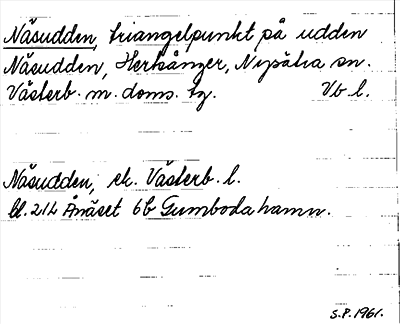 Näsudden, triangelpunkt på udden
Näsudden, Hertsånger, Nysätra sn.
Västerb. m. doms. tg. Vb l.
Näsudden, ek. Västerb. l.
bl. 21L Ånäset 6b Gumbodahamn.
S.P. 1961.